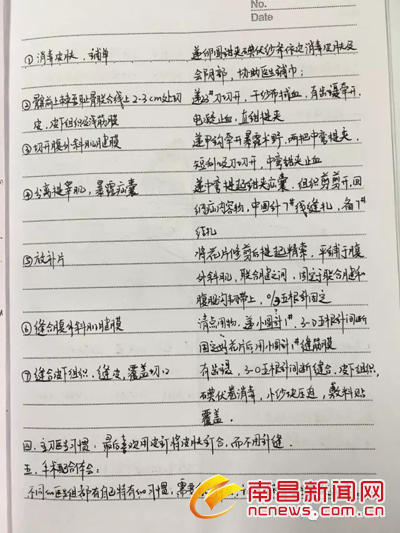 No.
Date
① 消毒皮肤、铺单 递卵圆钳夹碘伏纱布依次消毒皮肤及
会阴部，协助医生铺巾；
② 髂前上棘至耻骨联合线上2-3cm处切 递23#刀切开，干纱布拭血，有齿镊牵开，
皮、皮下组织及浅筋膜 电凝止血，直钳提夹
③ 切开腹外斜肌腱膜 递甲钩牵开暴露术野，两把中弯提夹，
切开，中弯钳止血
④ 分离提睾肌，暴露疝囊 递中弯提起钳夹疝囊，组织剪剪开，回
纳疝内容物，中圆针7#线缝扎，备7#
结扎
⑤ 放补片 将花片修剪后提起精索，平铺于腹
外斜肌，联合腱之间，固定于联合腱和
腹股沟韧带上，
⑥ 缝合腹外斜肌腱膜 清点用物，递小圆针1#，3-0 针间断
固定好花片后用小圆针1#缝筋膜
⑦ 缝合皮下组织，缝皮，覆盖切口 有齿镊，3-0 针间断缝合皮下组织，
碘伏卷消毒，小纱块压迫，敷料贴
覆盖。
四、主刀医生习惯：最后喜欢用皮钉将皮肤钉合，而不用针缝
五、手术配合体会：
不同的医生组都有自己特有的习惯，需
南昌新闻网
ncnews.com.cn